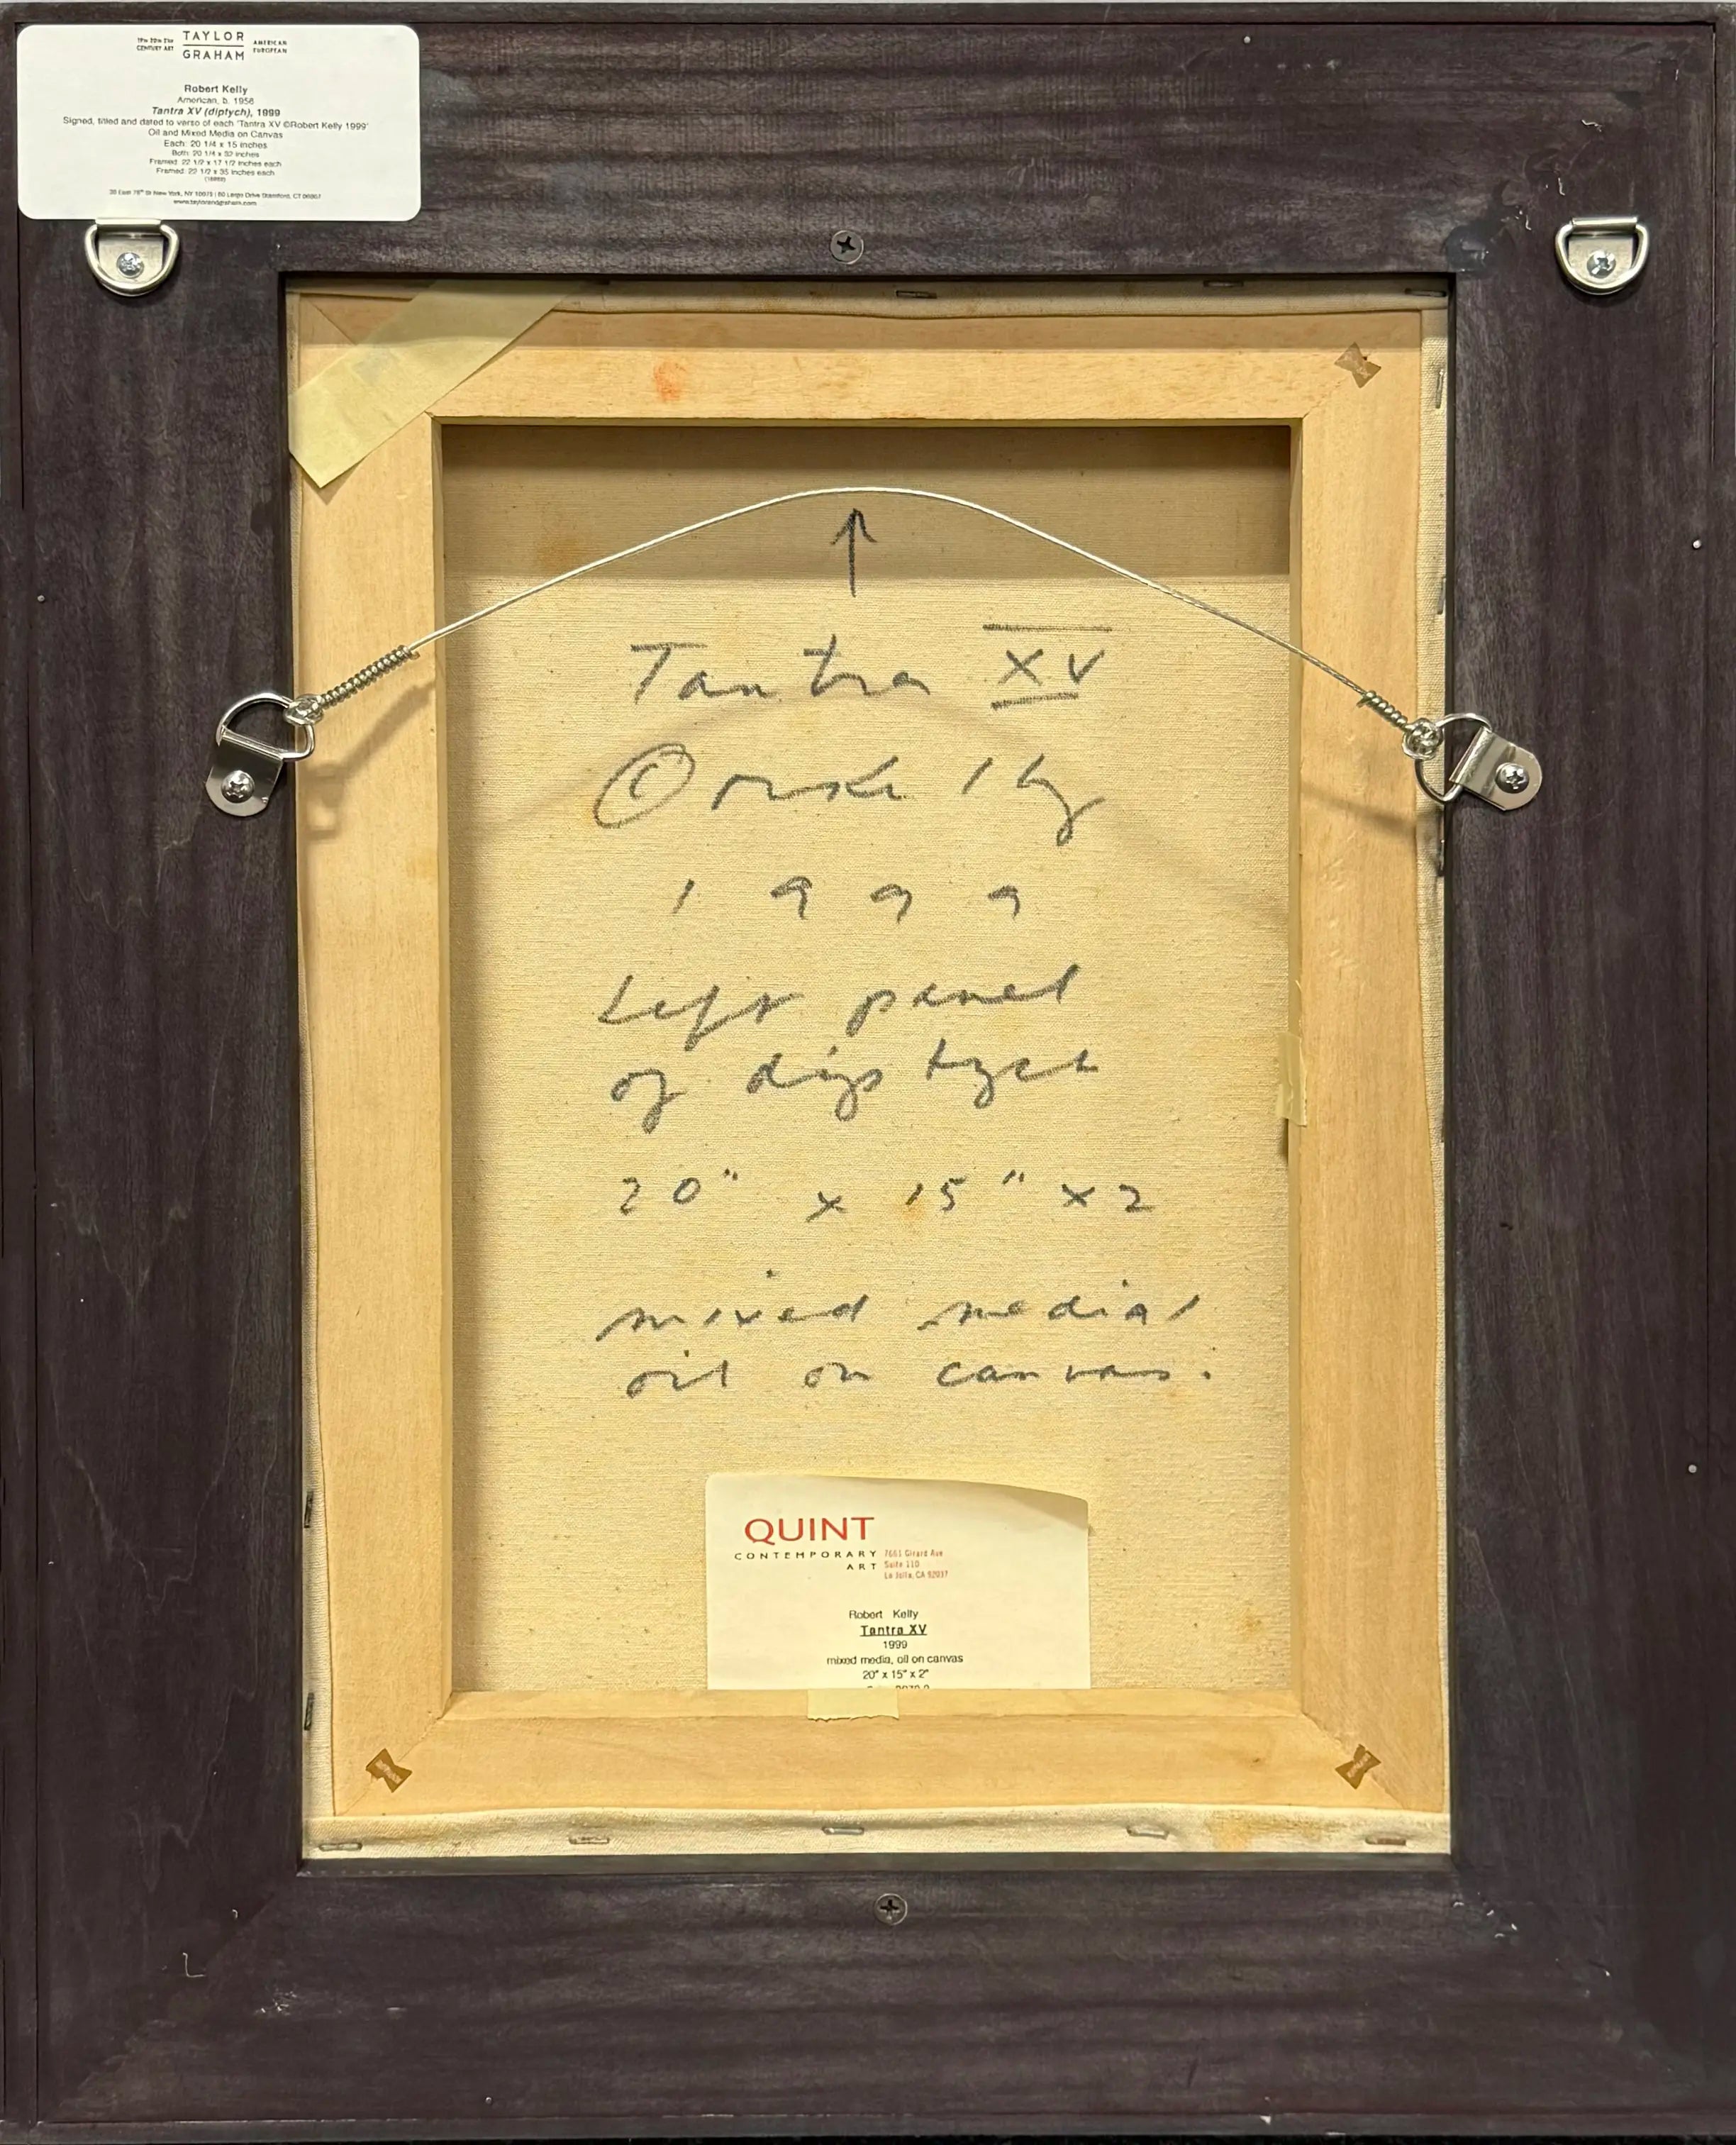 19TH 20TH 21ST
CENTURY ART
TAYLOR
GRAHAM
AMERICAN
EUROPEAN
Robert Kelly
American, b. 1956
Tantra XV (diptych), 1999
Signed, titled and dated to verso of each 'Tantra XV ©Robert Kelly 1999'
Oil and Mixed Media on Canvas
Each: 20 1/4 x 15 inches
Both: 20 1/4 x 32 inches
Framed: 22 1/2 x 17 1/2 inches each
Framed: 22 1/2 x 35 inches each
www.taylorandgraham.com
Tantra XV
©
1999
Left panel
of diptych
20" x 15" x 2
mixed media/
oil on canvas.
QUINT
CONTEMPORARY
ART
7661 Girard Ave
Suite 110
La Jolla, CA 92037
Robert Kelly
Tantra XV
1999
mixed media, oil on canvas
20" x 15" x 2"